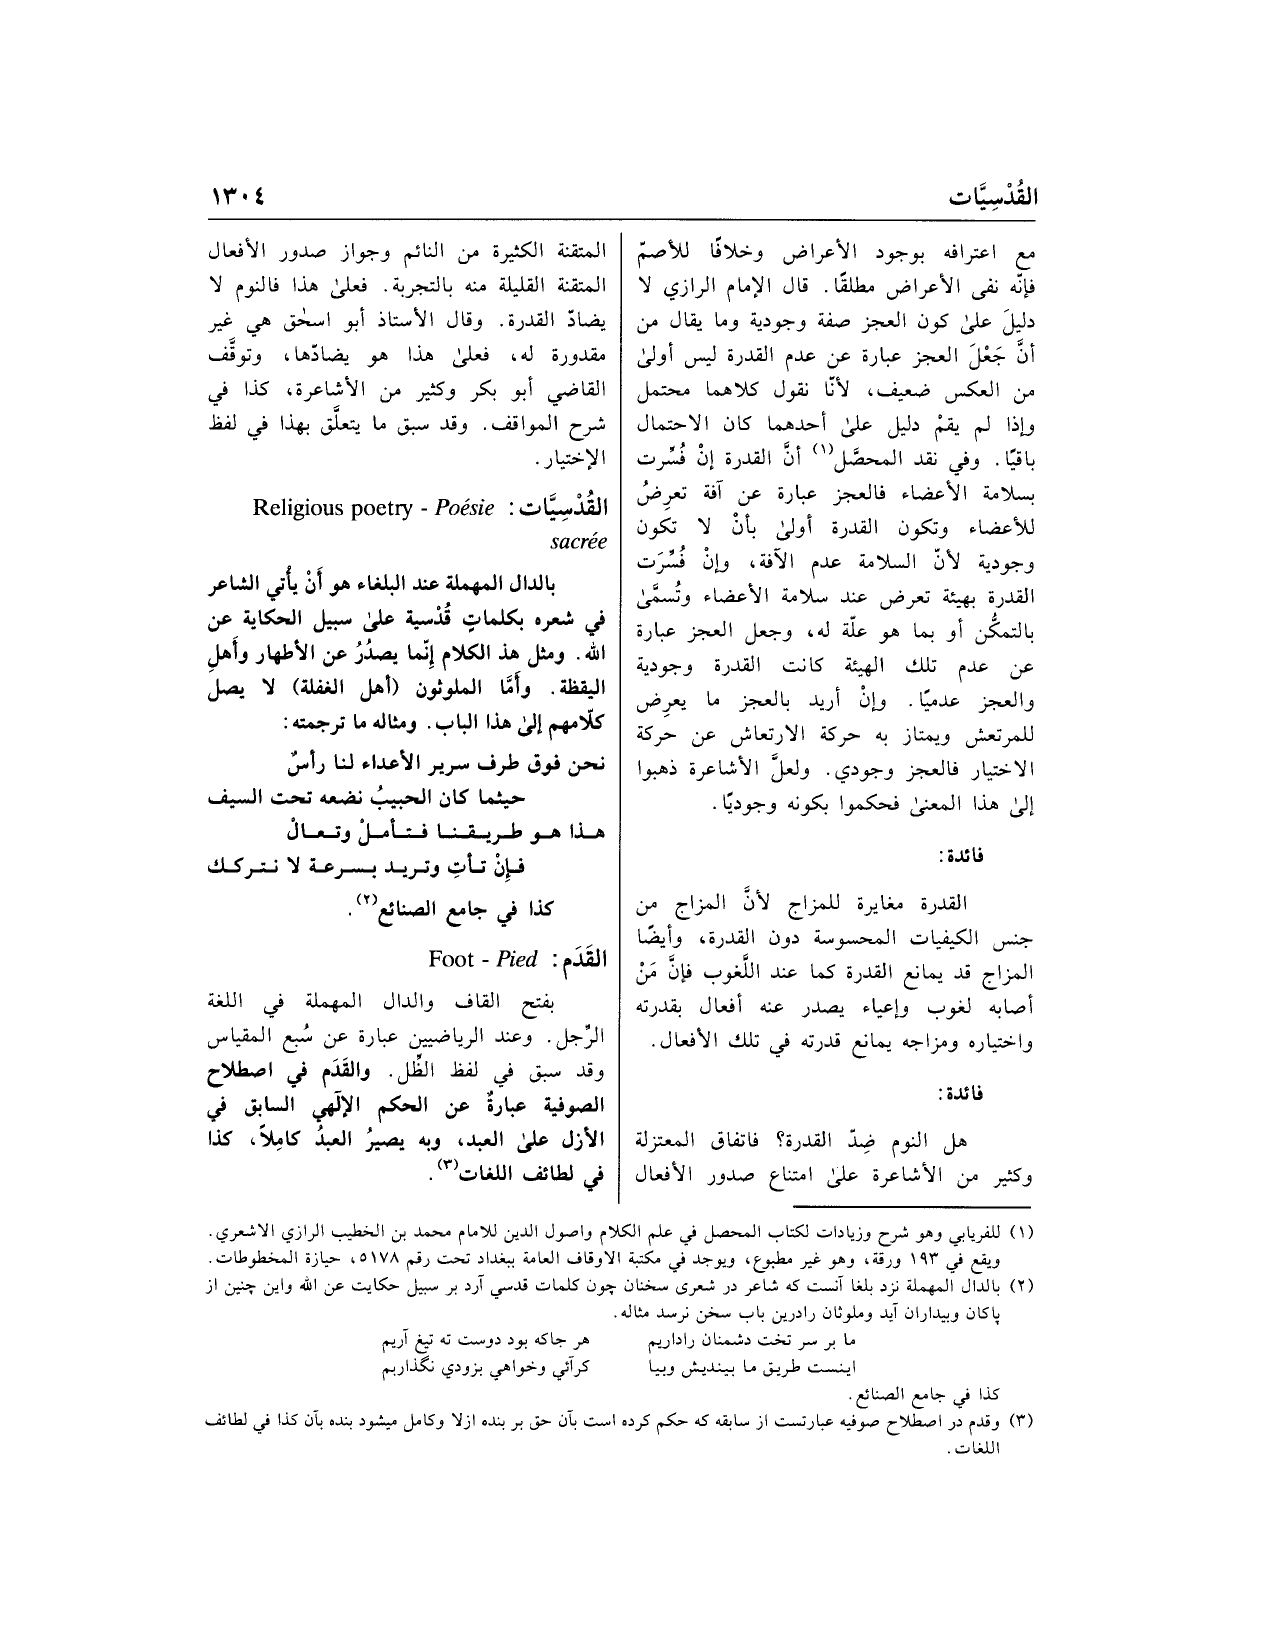 القُدْسِيَّات
١٣٠٤
مع اعترافه بوجود الأعراض وخلافًا للأصمّ
فإنّه نفى الأعراض مطلقًا. قال الإمام الرازي لا
دليلَ علىٰ كون العجز صفة وجودية وما يقال من
أنَّ جَعْلَ العجز عبارة عن عدم القدرة ليس أولىٰ
من العكس ضعيف، لأنّا نقول كلاهما محتمل
وإذا لم يقمْ دليل علىٰ أحدهما كان الاحتمال
باقيًا. وفي نقد المحصَّل(١) أنَّ القدرة إنْ فُسِّرت
بسلامة الأعضاء فالعجز عبارة عن آفة تعرِضُ
للأعضاء وتكون القدرة أولىٰ بأنْ لا تكون
وجودية لأنّ السلامة عدم الآفة، وإنْ فُسِّرَت
القدرة بهيئة تعرض عند سلامة الأعضاء وتُسمَّىٰ
بالتمكُّن أو بما هو علّة له، وجعل العجز عبارة
عن عدم تلك الهيئة كانت القدرة وجودية
والعجز عدميًا. وإنْ أريد بالعجز ما يعرِض
للمرتعش ويمتاز به حركة الارتعاش عن حركة
الاختيار فالعجز وجودي. ولعلَّ الأشاعرة ذهبوا
إلىٰ هذا المعنىٰ فحكموا بكونه وجوديًا.
فائدة:
القدرة مغايرة للمزاج لأنَّ المزاج من
جنس الكيفيات المحسوسة دون القدرة، وأيضًا
المزاج قد يمانع القدرة كما عند اللَّغوب فإنَّ مَنْ
أصابه لغوب وإعياء يصدر عنه أفعال بقدرته
واختياره ومزاجه يمانع قدرته في تلك الأفعال.
فائدة:
هل النوم ضِدّ القدرة؟ فاتفاق المعتزلة
وكثير من الأشاعرة علىٰ امتناع صدور الأفعال
المتقنة الكثيرة من النائم وجواز صدور الأفعال
المتقنة القليلة منه بالتجربة. فعلىٰ هذا فالنوم لا
يضادّ القدرة. وقال الأستاذ أبو اسحٰق هي غير
مقدورة له، فعلىٰ هذا هو يضادّها، وتوقَّف
القاضي أبو بكر وكثير من الأشاعرة، كذا في
شرح المواقف. وقد سبق ما يتعلَّق بهذا في لفظ
الإختيار.
القُدْسِيَّات: Religious poetry - Poésie
sacrée
بالدال المهملة عند البلغاء هو أَنْ يأُتي الشاعر
في شعره بكلماتٍ قُدْسية علىٰ سبيل الحكاية عن
الله. ومثل هذ الكلام إنّما يصدُرُ عن الأطهار وأهلِ
اليقظة. وأَمَّا الملوثون (أهل الغفلة) لا يصل
كلّامهم إلىٰ هذا الباب. ومثاله ما ترجمته:
نحن فوق طرف سرير الأعداء لنا رأسٌ
حيثما كان الحبيبُ نضعه تحت السيف
هذا هو طريقنا فتأملْ وتعالْ
فإنْ تأتِ وتريد بسرعة لا نتركك
كذا في جامع الصنائع(٢).
القَدَم: Foot - Pied
بفتح القاف والدال المهملة في اللغة
الرِّجل. وعند الرياضيين عبارة عن سُبع المقياس
وقد سبق في لفظ الظِّل. والقَدَم في اصطلاح
الصوفية عبارةٌ عن الحكم الإلٰهي السابق في
الأزل علىٰ العبد، وبه يصيرُ العبدُ كامِلاً، كذا
في لطائف اللغات(٣).
(١) للفريابي وهو شرح وزيادات لكتاب المحصل في علم الكلام واصول الدين للامام محمد بن الخطيب الرازي الاشعري.
ويقع في ١٩٣ ورقة، وهو غير مطبوع، ويوجد في مكتبة الاوقاف العامة ببغداد تحت رقم ٥١٧٨، حيازة المخطوطات.
(٢) بالدال المهملة نزد بلغا آنست كه شاعر در شعرى سخنان چون كلمات قدسي آرد بر سبيل حكايت عن الله واين چنين از
پاكان وبيداران آيد وملوثان رادرين باب سخن نرسد مثاله.
ما بر سر تخت دشمنان راداريم هر جاكه بود دوست ته تيغ آريم
اينست طريق ما بينديش وبيا كرآئي وخواهي بزودي نگذاريم
كذا في جامع الصنائع.
(٣) وقدم در اصطلاح صوفيه عبارتست از سابقه كه حكم كرده است بآن حق بر بنده ازلا وكامل ميشود بنده بآن كذا في لطائف
اللغات.